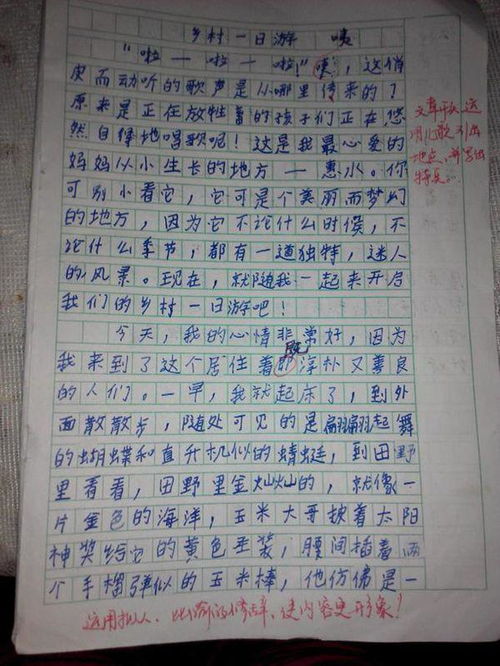 乡村一日游 咦
"啦—啦—啦!"咦,这悄
皮而动听的歌声是从哪里传来的?
原来是正在放牲畜的孩子们正在悠
然自得地唱歌呢!这是我最心爱的
妈妈从小生长的地方—惠水。你
可别小看它,它可是个美丽而梦幻
的地方,因为它不论什么时候,不
论什么季节,都有一道独特,迷人
的风景。现在,就随我一起来开启
我们的乡村一日游吧!
今天,我的心情非常好,因为
我来到了这个居住着既淳朴又善良
的人们。一早,我就起床了,到外
面散散步,随处可见的是翩翩起舞
的蝴蝶和直升机似的蜻蜓,到田野
里看看,田野里金灿灿的,就像一
片金色的海洋,玉米大哥披着太阳
神奖给它的黄色圣装,腰间插着两
个手榴弹似的玉米棒,他仿佛是一
文章开头运
用儿歌引出
地点,并写出
特点。
运用拟人、比喻的修辞,使内容更形象!